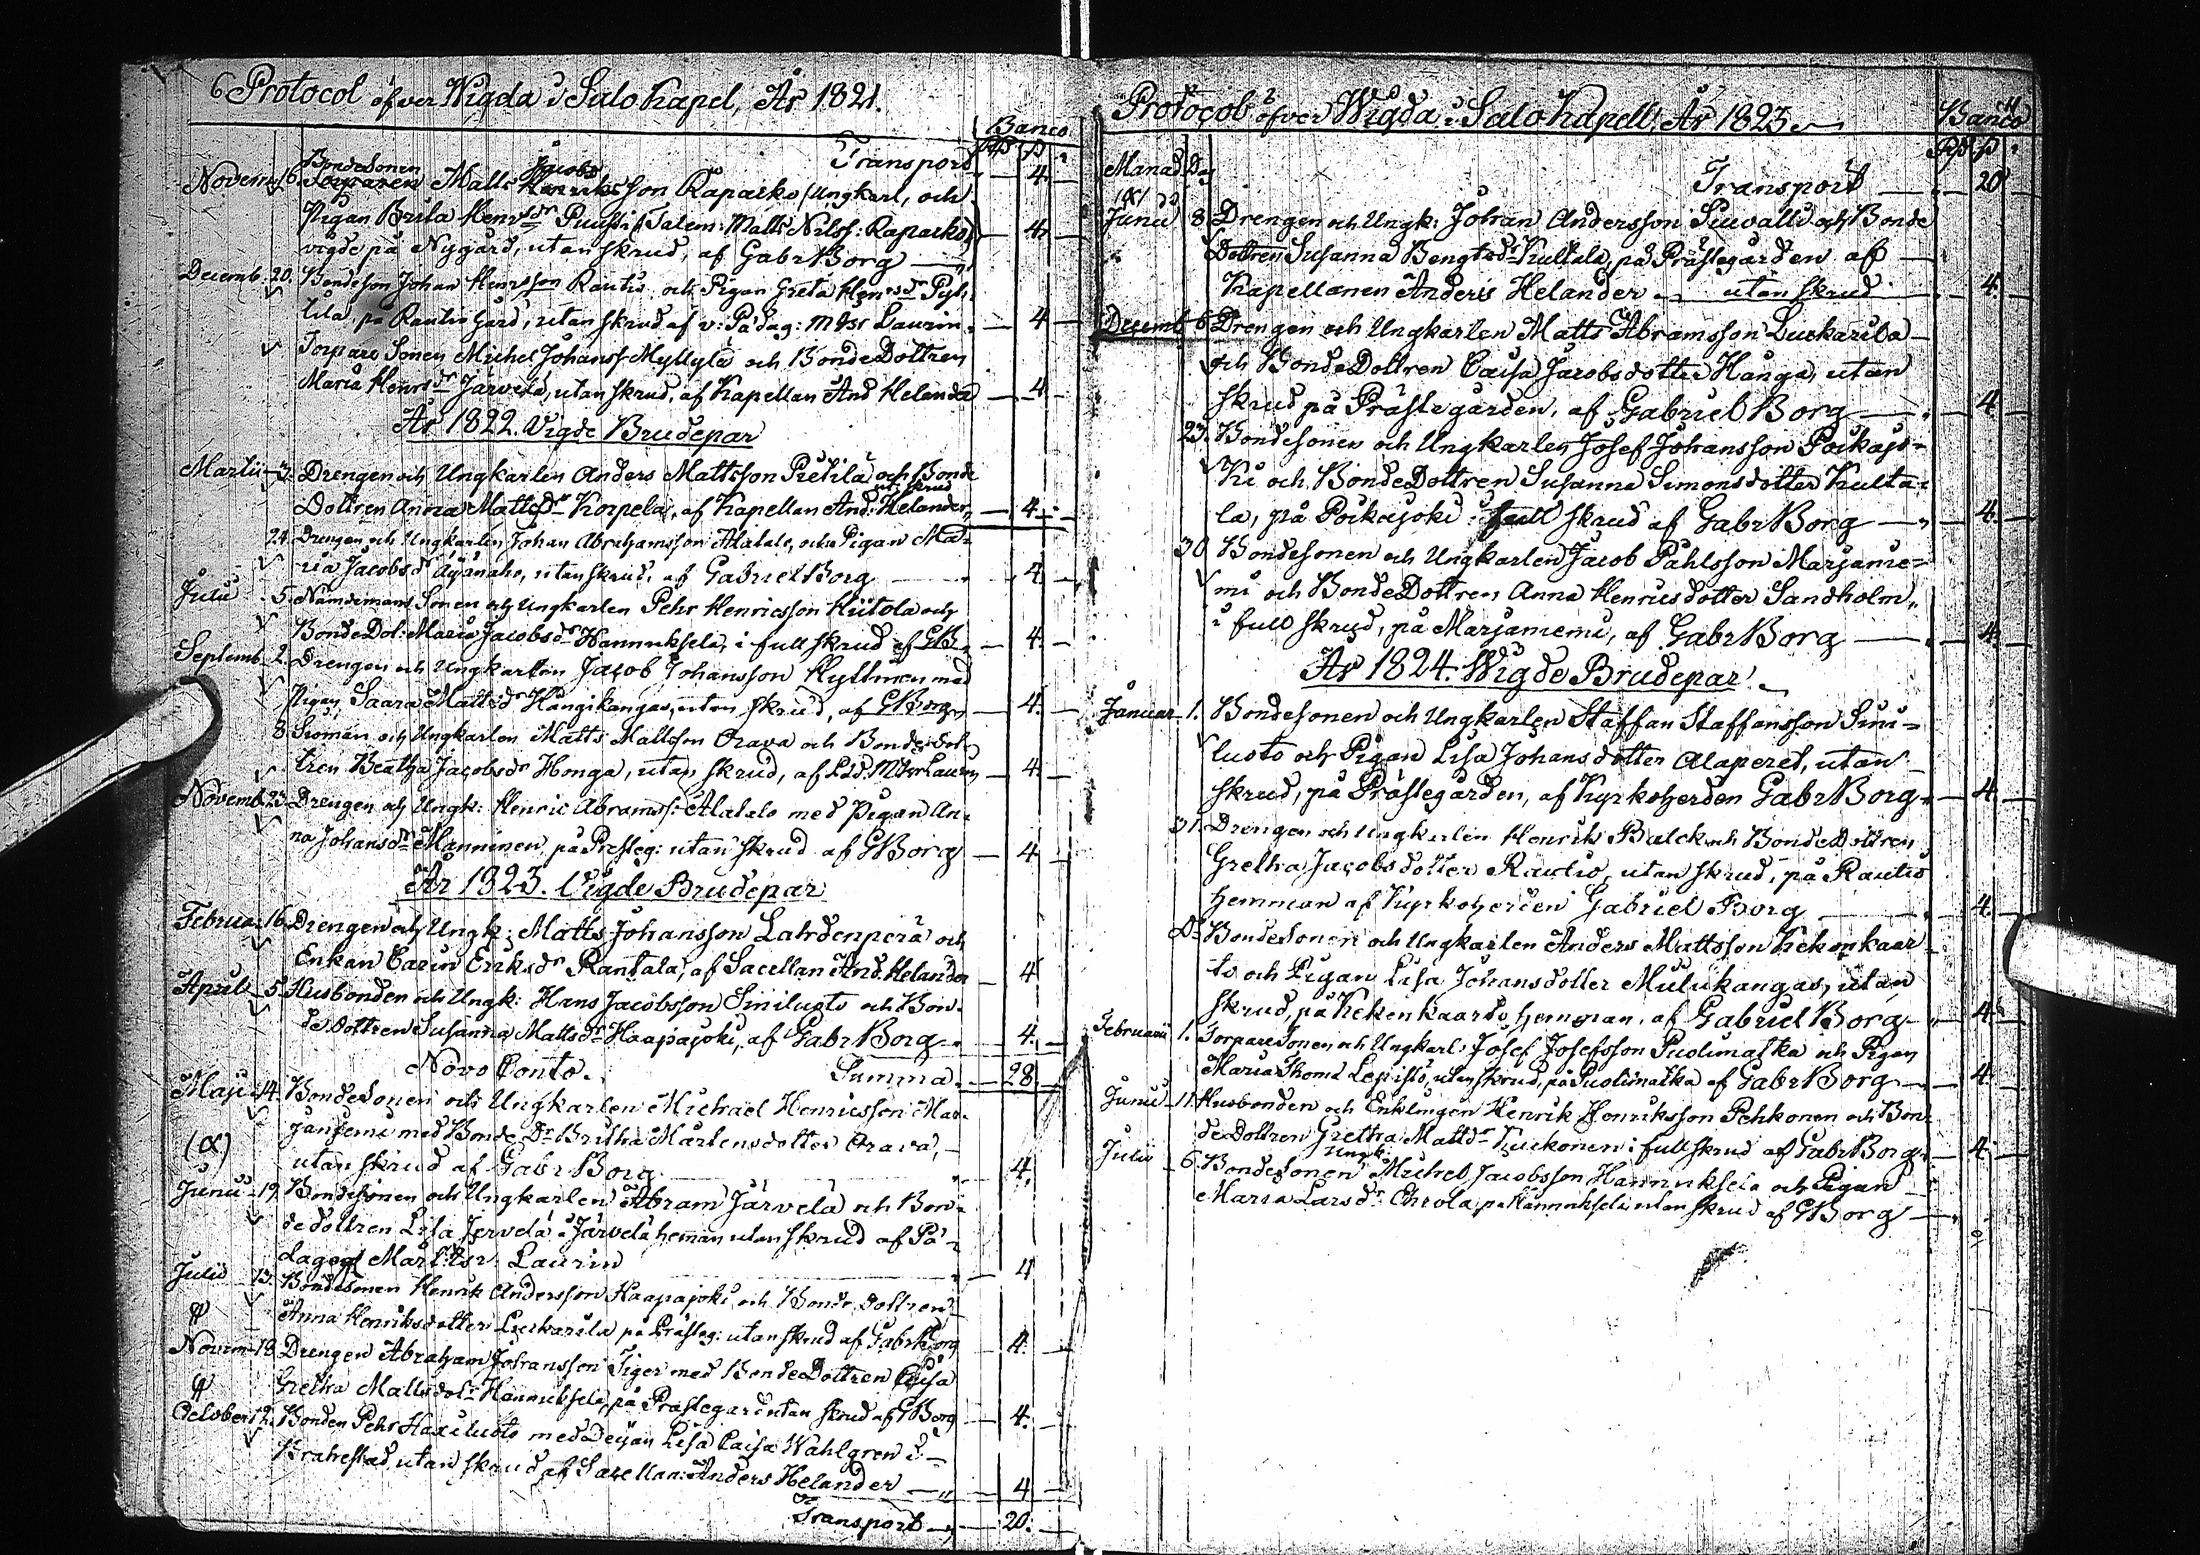 6 Protocol öfver Wigda i Salo Kapel, År 1821.
Banco
Rd ß
Transport — 4. —
Novemb. 6. Bondesonen Torparen Matts Jacobs Henriksson Raparko (Ungkarl, och
Pigan Brita Henrsdr (Salem: Matts Nilss: Raparko) — 4. —
vigde på Nygård, utan skrud, af Gabr Borg
Decemb. 20. Bondeson Johan Henrsson Rautio och Pigan Greta Henrsdr Pyh-
tilä, på Rautio Gård, utan skrud af v: Pädag: Mster Laurin. — 4 —
Torpare Sonen Michel Johanss. Myllylä och BondeDottren
Maria Henrsdr Järvelä, utan skrud, af Kapellan And Helander — 4 —
År 1822. Vigde Brudepar
Martii 3. Drengen och Ungkarlen Anders Mattsson Pietilä och Bonde
ut: skrud
Dottren Anna Mattsdr Korpela, af Kapellan And: Helander, — 4. —
24. Drengen och Ungkarlen Johan Abrahamsson Alatalo, och Pigan Ma-
ria Jacobsdr Äijänaho, utan skrud, af Gabriel Borg — 4. —
Julii 5. Nämdemans Sonen och Ungkarlen Pehr Henricsson Hiitola och
BondeDot: Maria Jacobsdr Hannuksela, i full skrud af GB. — 4. —
Septemb. 2. Drengen och Ungkarlen Jacob Johansson Kyttinen med
Pigan Saara Mattsdr Hangikangas, utan skrud, af GBorg, — 4. —
8. Sjöman och Ungkarlen Matts Mattsson Orava och Bondedot-
tren Beatha Jacobsdr Honga, utan skrud, af Mster Laurin — 4. —
Novemb. 23. Drengen och Ungk: Henric Abramss: Alatalo med Pigan An-
na Johansdr Manninen, på Presteg: utan skrud af GBorg — 4 —
År 1823. Vigde Brudepar
Februa: 16. Drengen och Ungk: Matts Johansson Lahdenperä och
Enkan Carin Eriksdr Rantala, af Sacellan And. Helander — 4
Aprili 5. Husbonden och Ungk: Hans Jacobsson Siniluoto och Bon-
deDottren Susanna Mattsdr Haapajoki, af Gabr Borg. — 4. —
Novo Conto. Summa. — 28 —
Maji 14. Bondesonen och Ungkarlen Michael Henricsson Mar-
janiemi med Bonde Dr Britha Mårtensdotter Orava, —
(α) utan skrud af Gabr Borg — 4.
Junii 19. Bondesonen och Ungkarlen Abram Järvelä och Bon-
dedottren Lisa Jervelä i Järvelä heman utan skrud af Pä-
dagog Mag:ter Laurin — 4
Julii 13. Bondesonen Henrik Andersson Haapajoki och Bonde dottren
Anna Henriksdotter Luckarila på Prästeg: utan skrud af Gabr Borg — 4. —
Novem 18. Drengen Abraham Johansson Tiger med BondeDottren Caisa
Gretha Mattsdotr Hannuksela, på Prästegård utan skrud af GBorg — 4. —
October 12. Bonden Pehr Haxiluoto med Dejan Lisa Caisa Wahlgren i
Brahestad utan skrud af Sacellan: Anders Helander — 4 —
Transport — 20. —
Protocol öfver Wigda i Salo Kapell År 1823.
Banco
Månad Dag Rd ß
Transport — 20
(α)
Junii 8 Drengen och Ungk: Johan Andersson Siuvatti och Bonde
Dottren Susanna Bengtsdr Kultala, på Prästegården af
Kapellanen Anders Helander — utan skrud — 4. —
Decemb 6 Drengen och Ungkarlen Matts Abramsson Luckarila
och BondeDottren Caisa Jacobsdotter Hanga, utan
skrud på Prästegården, af Gabriel Borg — 4 —
23. Bondesonen och Ungkarlen Josef Johansson Poikajo-
ki och BondeDottren Susanna Simonsdotter Kulta-
la, på Poikajoki i full skrud af Gabr Borg — 4. —
30 Bondesonen och Ungkarlen Jacob Påhlsson Marjanie-
mi och BondeDottren Anna Henricsdotter Sandholm,
i full skrud, på Marjaniemi, af Gabr Borg — 4. —
År 1824. Wigde Brudepar.
Januar 1. Bondesonen och Ungkarlen Staffan Staffansson Sini-
luoto och Pigan Lisa Johansdotter Alaperet, utan
skrud, på Prästegården, af Kyrkoherden Gabr Borg — 4 —
31. Drengen och Ungkarlen Henrik Balck och BondeDottren
Gretha Jacobsdotter Rautio, utan skrud, på Rautio
hemman af Kyrkoherden Gabriel Borg — 4.
Do Bondesonen och Ungkarlen Anders Mattsson Kekonkaar-
to och Pigan Lisa Johansdotter Mulikangas, utan
skrud, på Kekonkaarto hemman, af Gabriel Borg — 4.
Februarii 1. Torparesonen och Ungkarl: Josef Josefsson Puolimatka och Pigan
Maria Thomd Lepistö, utan skrud, på Puolimatka af Gabr Borg — 4.
Junii 11. Husbonden och Enklingen Henrik Henriksson Pehkonen och Bon-
deDottren Gretha Mattsdr Kuckonen i full skrud af Gabr Borg. — 4 —
Julii 6. Bondesonen Ungk: Michel Jacobsson Hannuksela och Pigan
Maria Larsdr Ehrola, på Hannuksela utan skrud af GBorg —